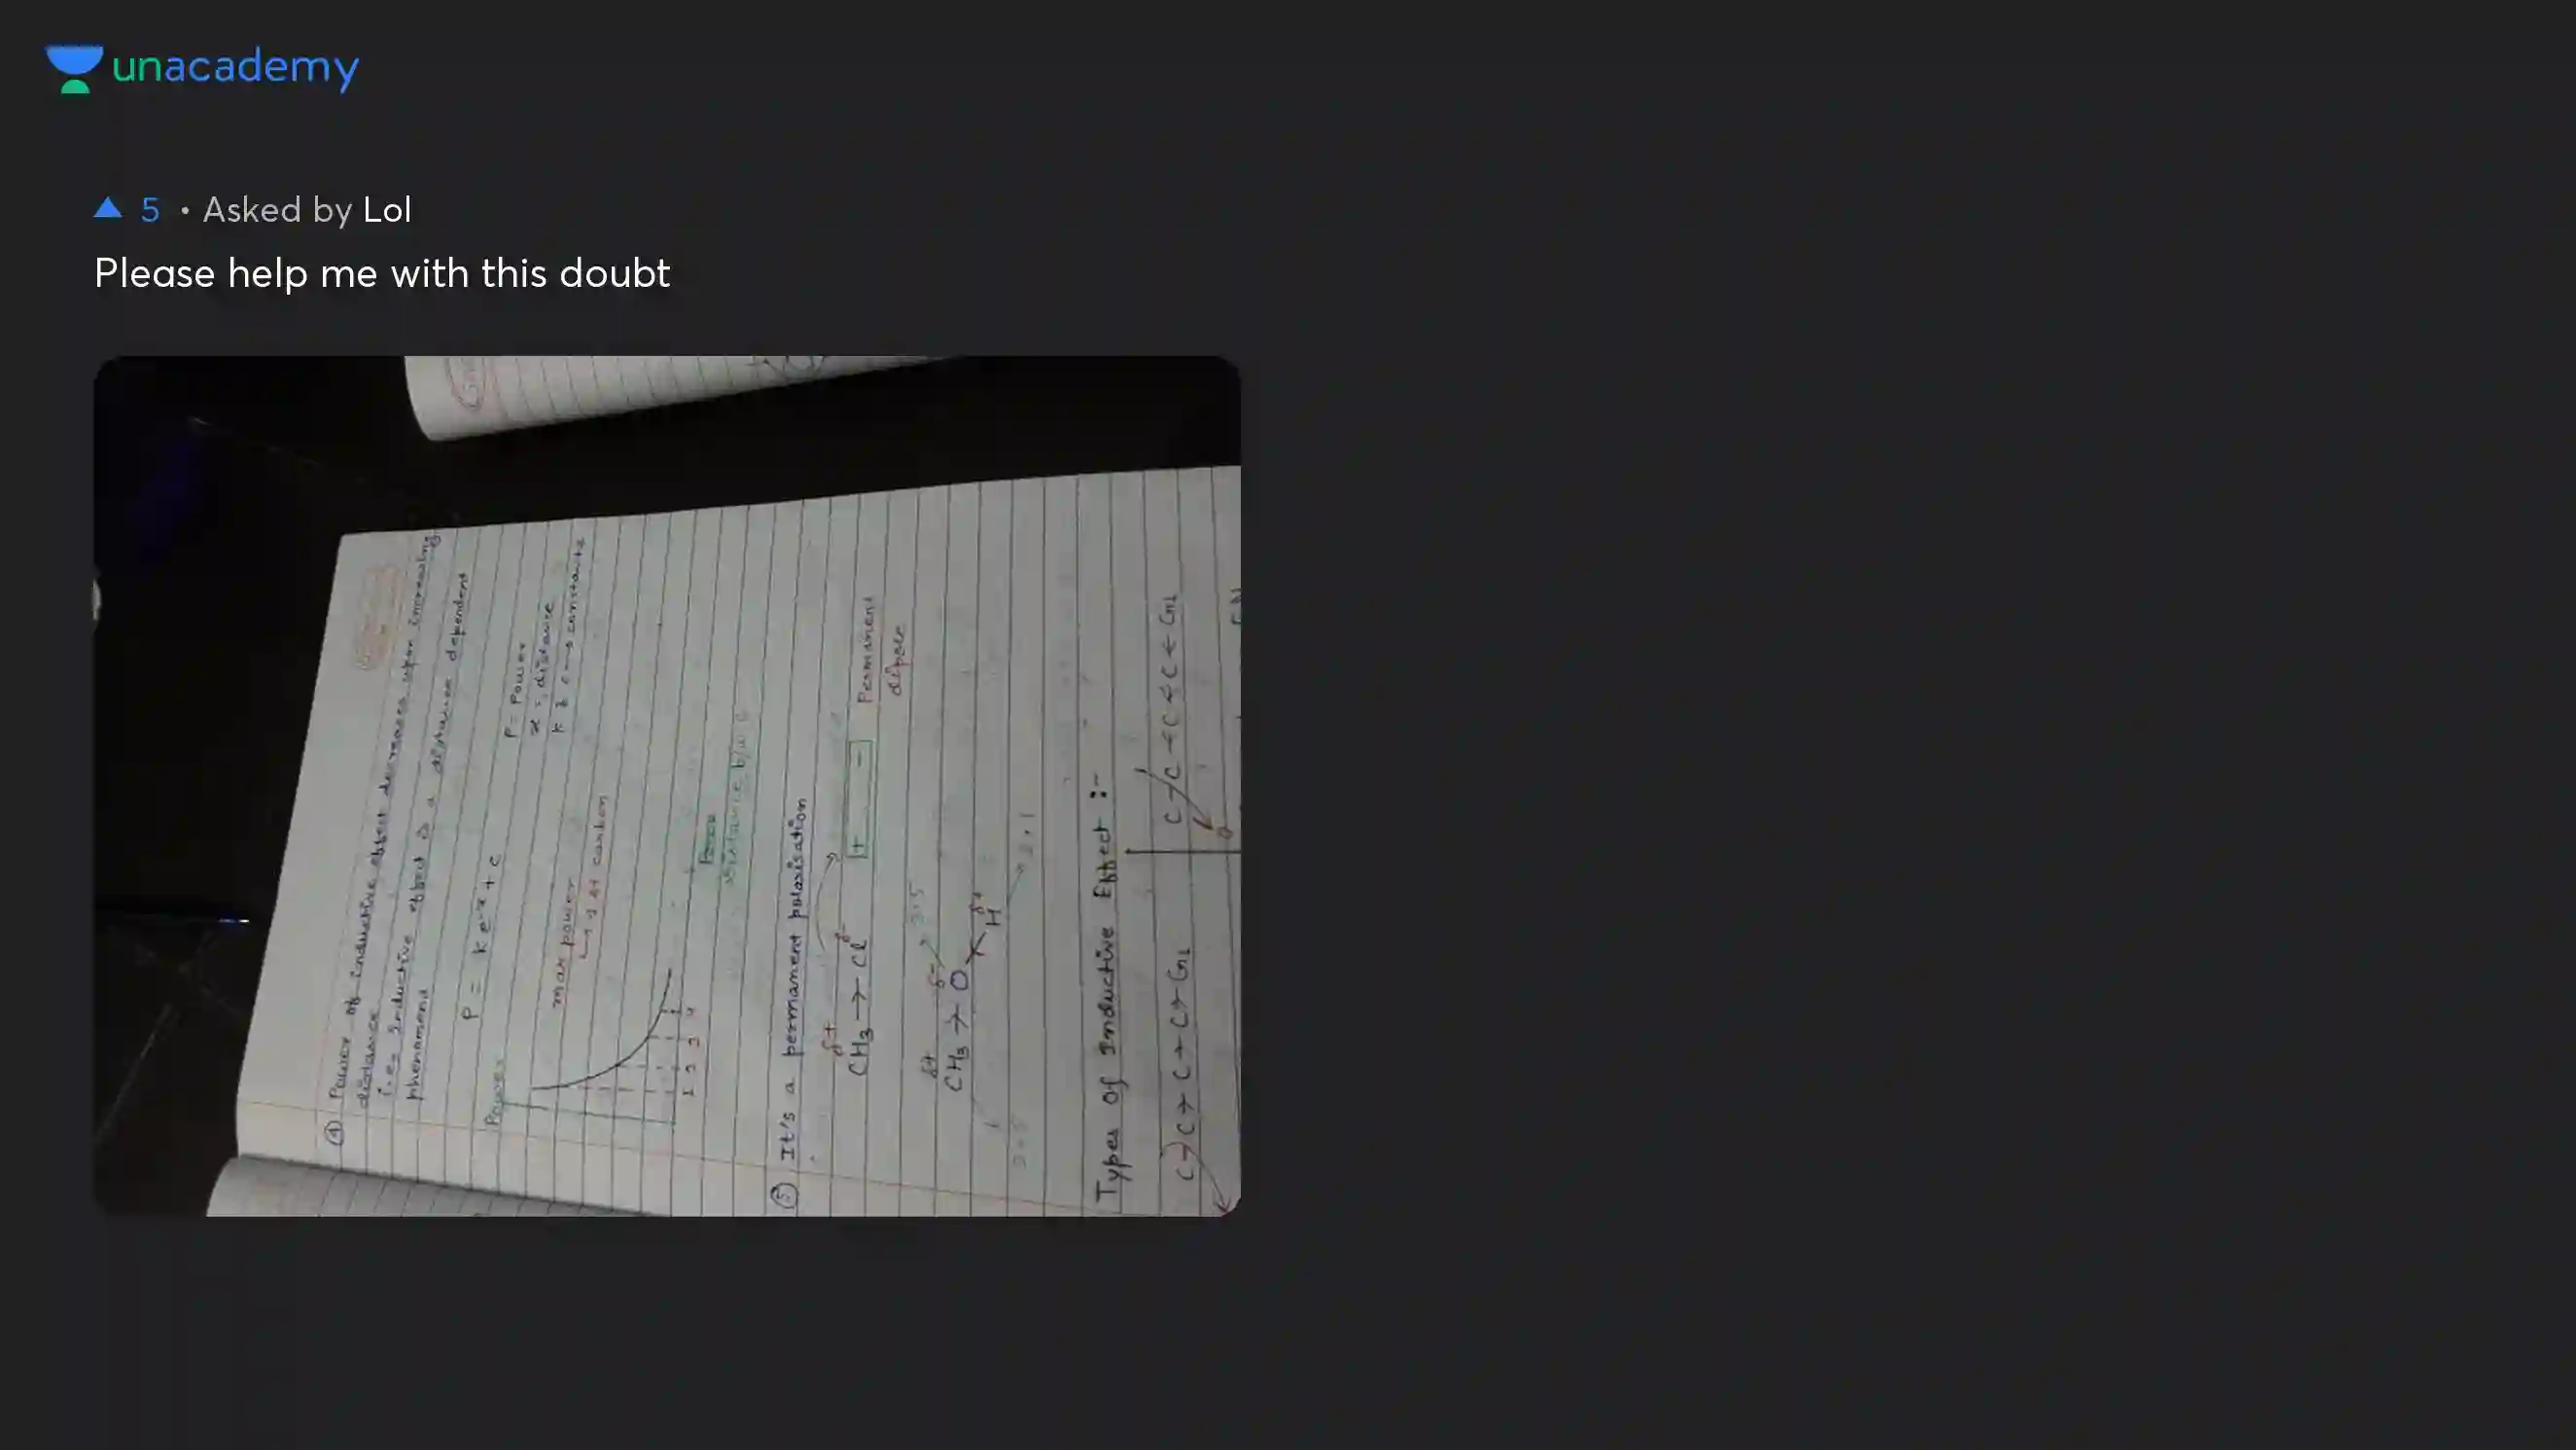 unacademy
5 • Asked by Lol
Please help me with this doubt
④ Power of inductive effect decreases upon increasing
distance
i.e. Inductive effect is a distance dependent
phenomena
P = k e⁻ˣ + c
P = Power
x = distance
k & c → constants
Power
max power
↳ 1st carbon
1 2 3 4
distance b/w C
⑤ It's a permanent polarisation
δ+ δ-
CH₃ → Cl
+ -
Permanent
dipole
δ+ δ- 3.5
CH₃ → O
H δ+
2.1
2.5
Types Of Inductive Effect :-
C → C → C → C → G₁
C ← C ← C ← C ← G₂